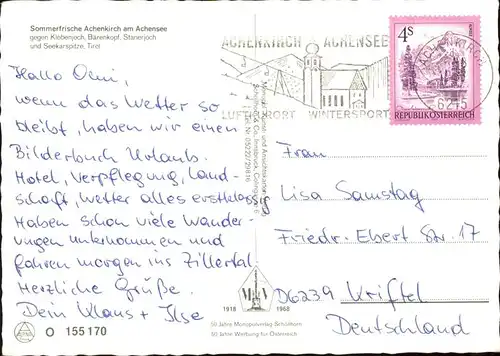 Sommerfrische Achenkirch am Achensee
gegen Kleberjoch, Bärenkopf, Stanerjoch
und Seekarspitze, Tirol
Hallo Omi,
wenn das Wetter so
bleibt, haben wir einen
Bilderbuch Urlaub.
Hotel, Verpflegung, Land-
schaft, Wetter alles erstklassig
Haben schon viele Wander-
ungen unternommen und
fahren morgen ins Zillertal
Herzliche Grüße.
Dein Klaus + Ilse
O 155170
ACHENKIRCH A. ACHENSEE
LUFTKURORT WINTERSPORT
6215
4 S
REPUBLIK ÖSTERREICH
Frau
Lisa Samstag
Friedr. Ebert Str. 17
D6239 Kriftel
Deutschland
1918 1968
50 Jahre Monopolverlag Schöllhorn
50 Jahre Werbung für Österreich